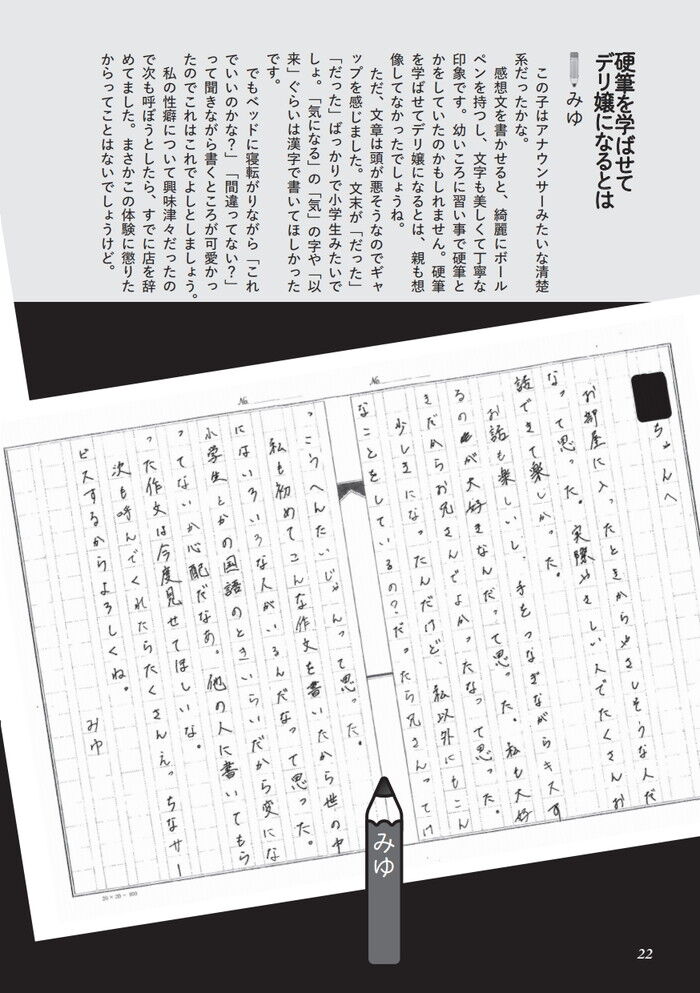 硬筆を学ばせて
デリ嬢になるとは
みゆ
この子はアナウンサーみたいな清楚
系だったかな。
感想文を書かせると、綺麗にボール
ペンを持つし、文字も美しくて丁寧な
印象です。幼いころに習い事で硬筆と
かをしていたのかもしれません。硬筆
を学ばせてデリ嬢になるとは、親も想
像してなかったでしょうね。
ただ、文章は頭が悪そうなのでギャ
ップを感じました。文末が「だった」
「だった」ばっかりで小学生みたいで
しょ。「気になる」の「気」の字や「以
来」ぐらいは漢字で書いてほしかった
です。
でもベッドに寝転がりながら「これ
でいいのかな?」「間違ってない?」
って聞きながら書くところが可愛かっ
たのでこれはこれでよしとしましょう。
私の性癖について興味津々だったの
で次も呼ぼうとしたら、すでに店を辞
めてました。まさかこの体験に懲りた
からってことはないでしょうけど。
ちゃんへ
お部屋に入ったときからやさしそうな人だ
なって思った。実際やさしい人でたくさんお
話できて楽しかった。
お話も楽しいし、手をつなぎながらキスす
るのが大好きなんだって思った。私も大好
きだからお兄さんでよかったなって思った。
少しきになったんだけど、私以外にもこん
なことをしているの?だったら兄さんってけ
っこうへんたいじゃんって思った。
私も初めてこんな作文を書いたから世の中
にはいろいろな人がいるんだなって思った。
小学生とかの国語のときいらいだから変にな
ってないか心配だなあ。他の人に書いてもら
った作文は今度見せてほしいな。
次も呼んでくれたらたくさんえっちなサー
ビスするからよろしくね。
みゆ
No.
No.
20×20=400
みゆ
22